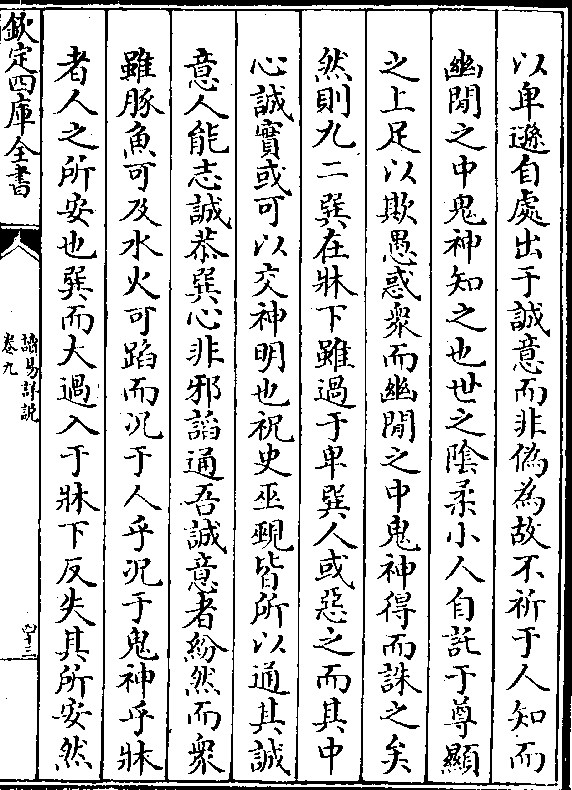 以卑遜自處出于誠意而非偽為故不祈于人知而
幽閒之中鬼神知之也世之陰柔小人自託于尊顯
之上足以欺愚惑衆而幽閒之中鬼神得而誅之矣
然則九二巽在牀下雖過于卑巽人或惡之而其中
心誠實或可以交神明也祝史巫覡皆所以通其誠
意人能志誠恭巽心非邪謟通吾誠意者紛然而衆
雖豚魚可及水火可蹈而况于人乎况于鬼神乎牀
者人之所安也巽而大過入于牀下反失其所安然
欽定四庫全書
讀易詳說
卷九
四十三